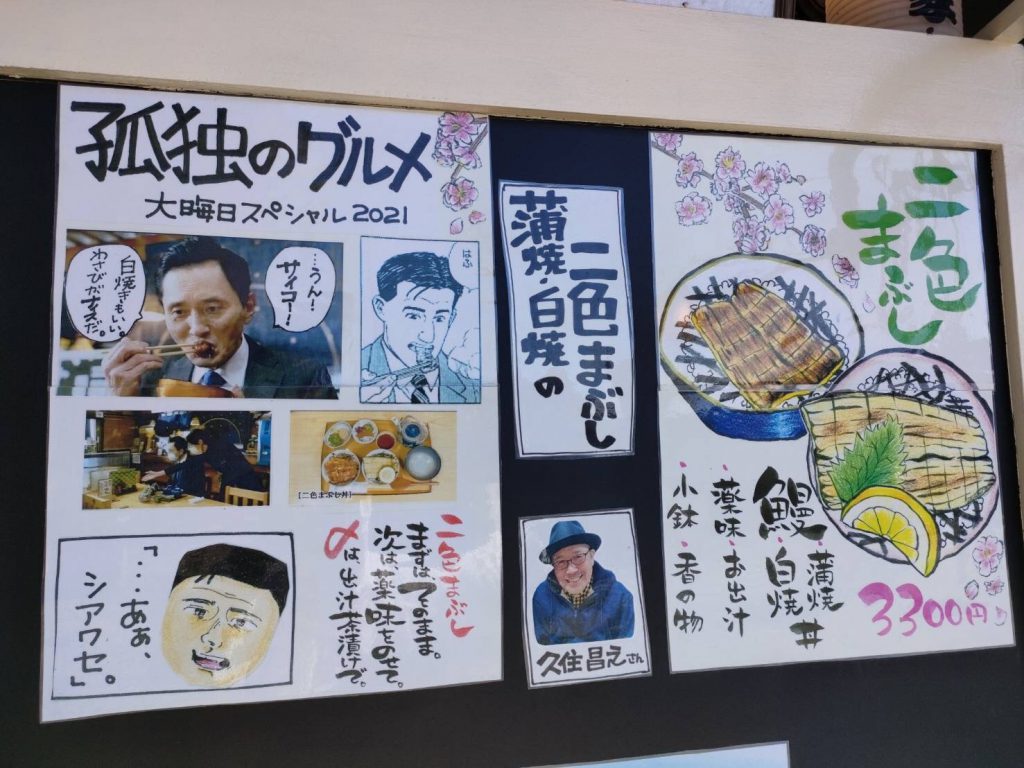 孤独のグルメ
大晦日スペシャル2021
…うん!
サイコー!
白焼きもいい。
わさびが
はふ
【二色まぶし丼】
「…あぁ、
シアワセ」。
二色まぶし
まずはそのまま。
次は、薬味をのせて。
〆は、出汁茶漬けで。
蒲焼・白焼の
二色まぶし
久住昌之さん
二色
まぶし
鰻・蒲焼
白焼丼
・薬味・お出汁
・小鉢・香の物
3300円